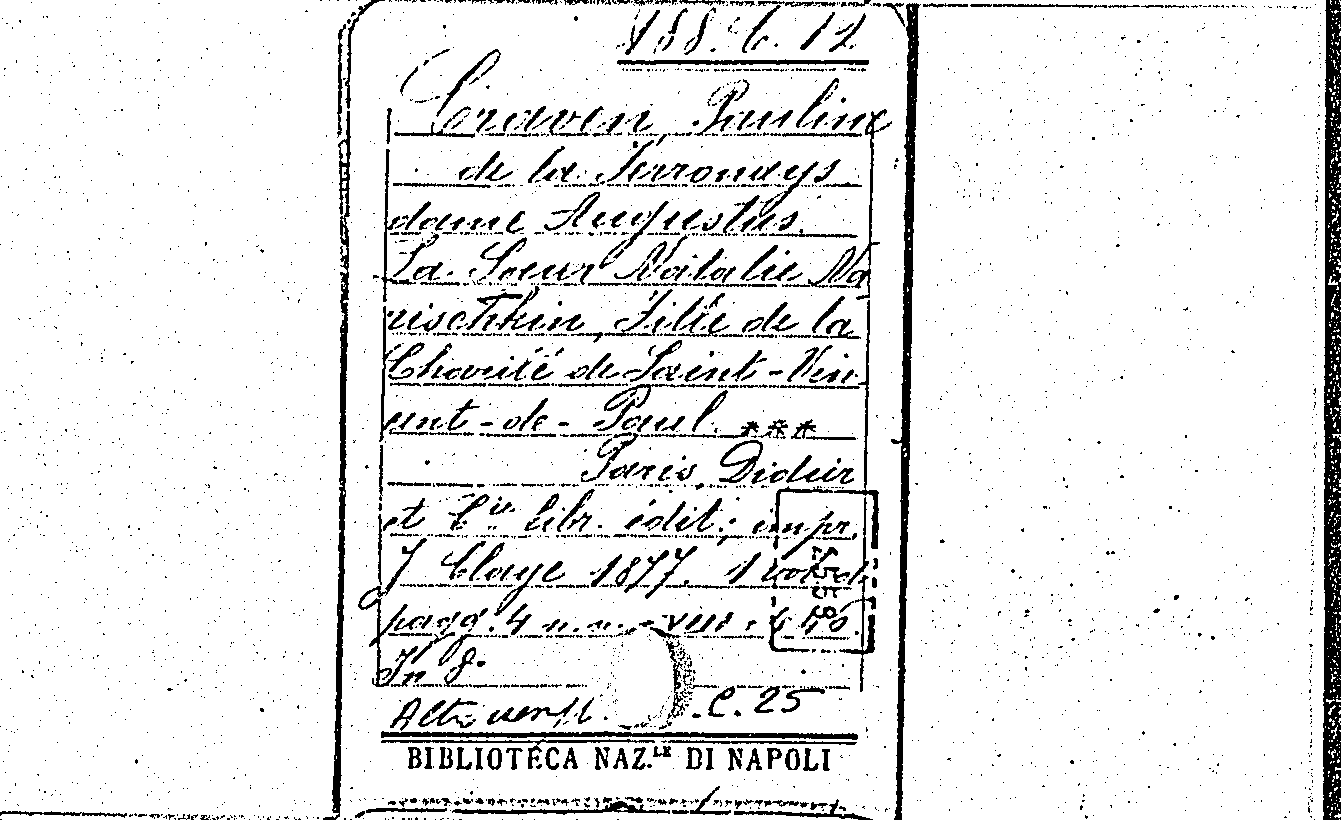 188. C. 12
Craven, Pauline
de la Ferronays
dame Augustus.
La Soeur Natalie Na
rischkin, Fille de la
Charité de Saint-Vin
cent-de-Paul. ***
Paris, Didier
et C.ie libr. édit.; impr.
J Claye 1877. 1 vol. di
pagg. 4 n.n. - VIII -
In 8.
C. 25
BIBLIOTECA NAZ.LE DI NAPOLI